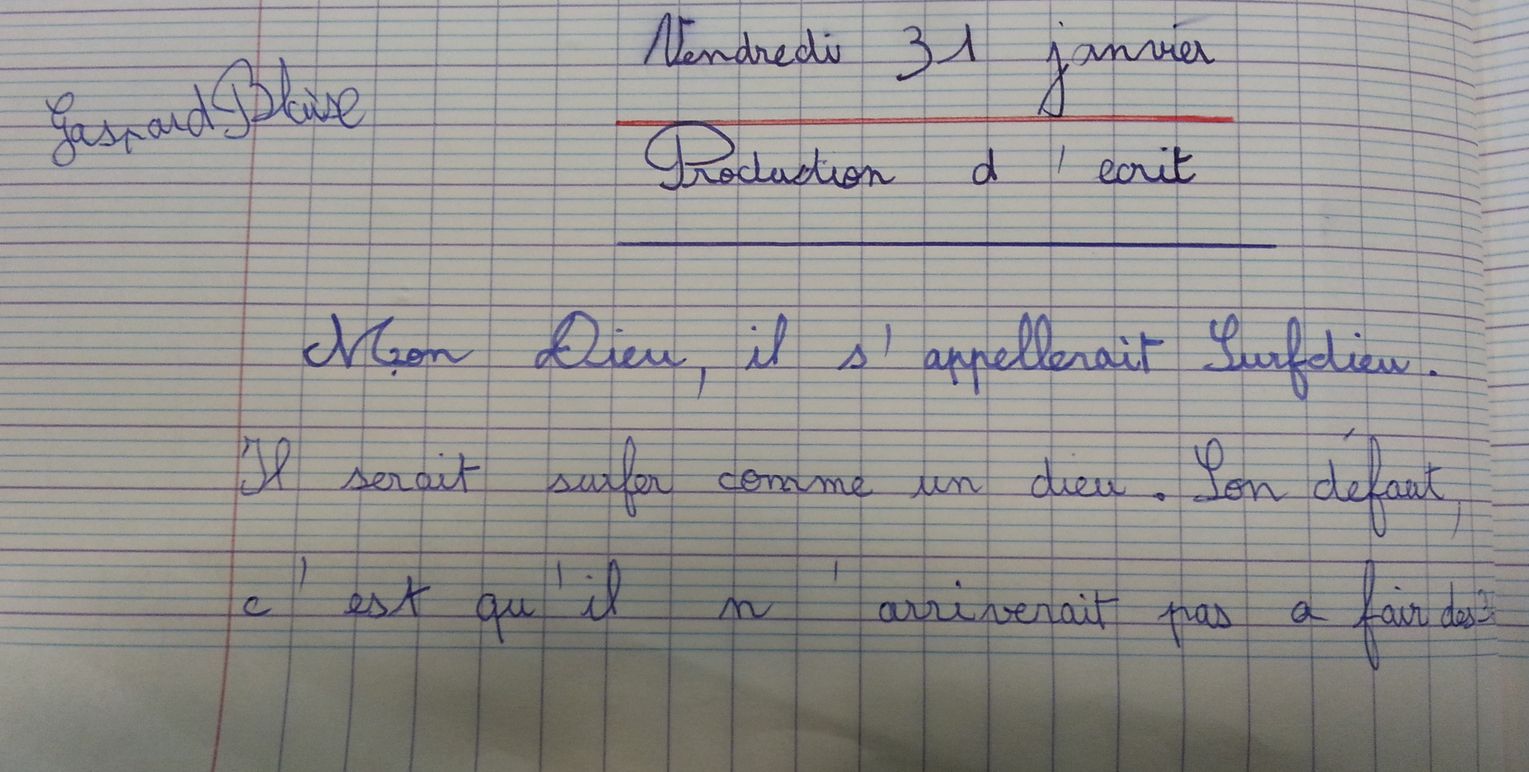 Vendredi 31 janvier
Gaspard Blaise
Production d'ecrit
Mon Dieu, il s'appellerait Surfdieu.
Il serait surfer comme un dieu. Son défaut,
c'est qu'il n'arriverait pas a fair des